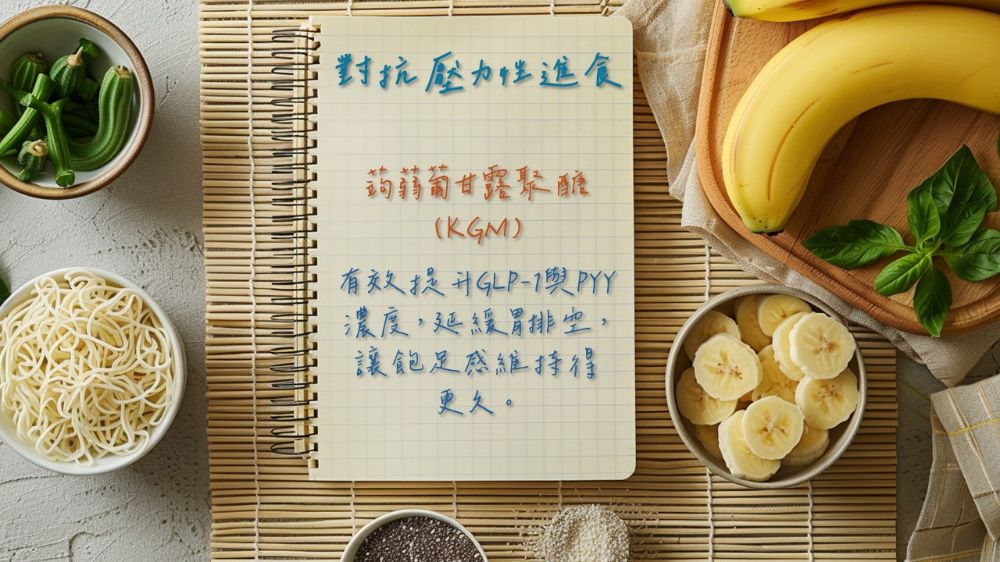 對抗壓力性進食
蒟蒻葡甘露聚醣
(KGM)
有效提升GLP-1與PYY
濃度,延緩胃排空,
讓飽足感維持得
更久。